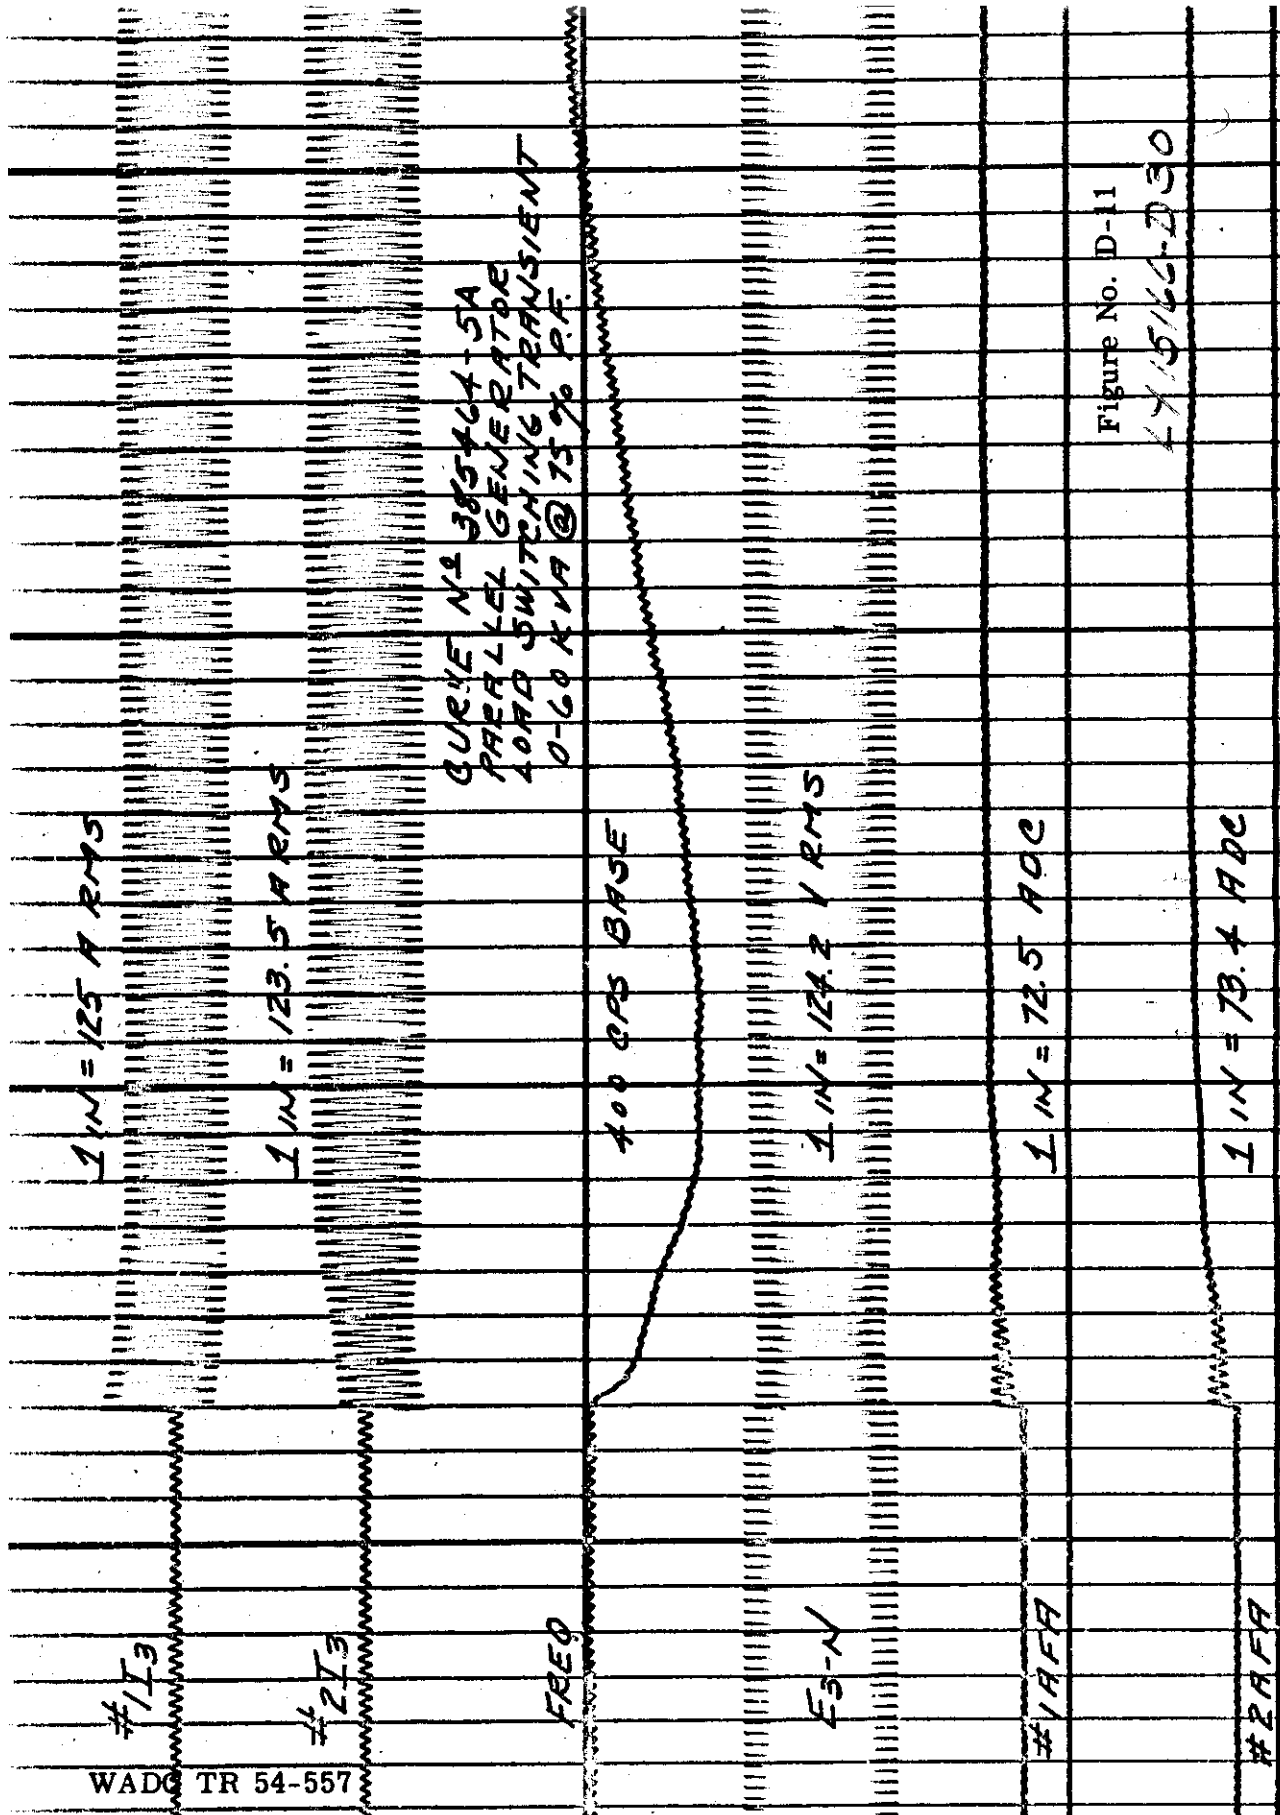 #1I3
1 IN = 125 A RMS
#2I3
1 IN = 123.5 A RMS
CURVE Nº 385464-5A
PARALLEL GENERATOR
LOAD SWITCHING TRANSIENT
0-60 KVA @ 75% P.F.
FREQ
400 CPS BASE
E3-N
1 IN = 124.2 V RMS
#1AFA
1 IN = 72.5 ADC
#2AFA
1 IN = 73.4 ADC
Figure No. D-11
WADC TR 54-557